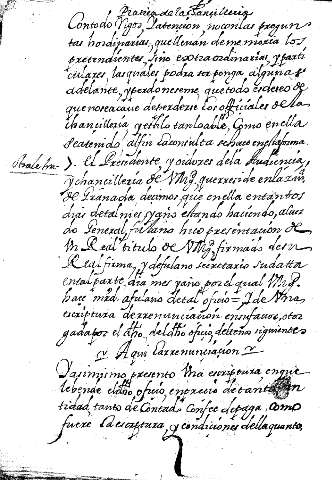 Practica de la Chancilleria
Con todo rigor, y atencion, no con las pregun
tas hordinarias, que llevan de memoria los
pretendientes, sino extra ordinarias, y parti
culares, las quales podra ser ponga algunas
adelante, y perdoneseme, que todo es deseo de
que no se acaue de perder en los officiales de la
Chancilleria, y estilo tan loable, Como en ella
se a tenido, al fin la consulta se hace en esta forma.
Otra letra
El Presidente, y oidores de la Audiencia
y chancilleria de V. Mg. que reside en la ciu.
de Granada decimos, que en ella en tantos
dias de tal mes y año estando haciendo, acuer
do General, fulano hico presentacion de
Vn Real titulo de V. Mg. firmado de su
Real firma, y de fulano secretario su data
en tal parte dia mes y año por el qual V. Mg.
hace mrd. a fulano de tal oficio = Y de Vna
escriptura de rrenunciacion en su favor, otor
gada por el dho. del dho oficio, del tenor siguiente
Aqui la rrenunciacion
Y asi mismo presento Vna escriptura en que
le vende el dho oficio, en precio de tanta can
tidad, tanto de Contado, Con fee de paga, como
fuere la escriptura, y condiciones della quanto